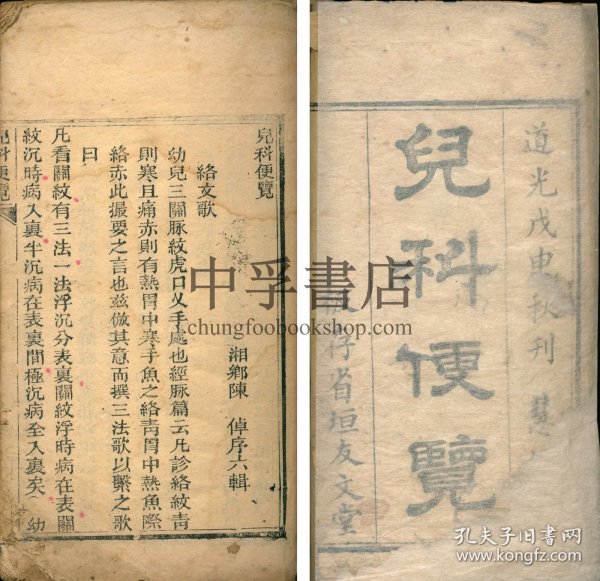 道光戊申秋刊
兒科便覽
存省垣友文堂
兒科便覽
湘鄉陳 倬序六輯
絡文歌
幼兒三關脉紋虎口乂手處也經脉篇云凡診絡紋青
則寒且痛赤則有熱胃中寒手魚之絡青胃中熱魚際
絡赤此撮要之言也兹倣其意而撰三法歌以繫之歌
曰
凡看關紋有三法一法浮沉分表裏關紋浮時病在表關
紋沉時病入裏半沉病在表裏間極沉病全入裏矣 幼
兒科便覽
中孚書店
chungfoobookshop.com
孔夫子旧書网
www.kongfz.com